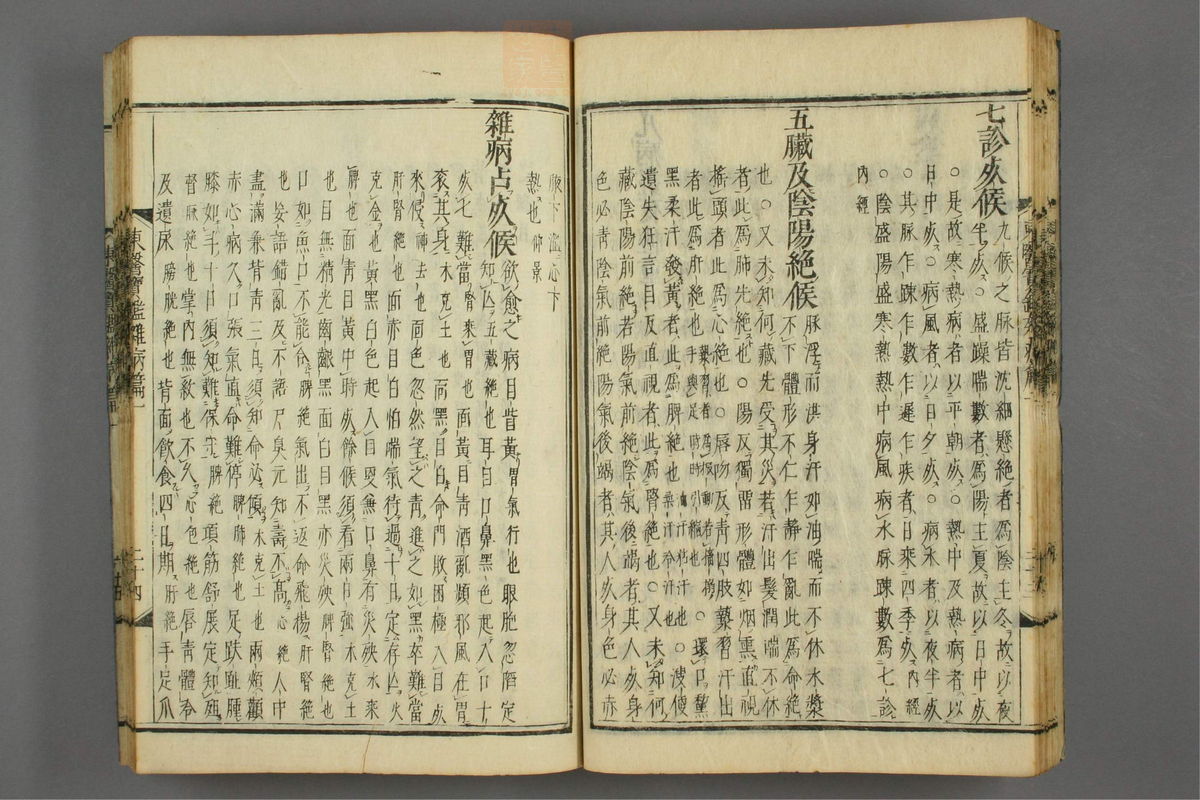 七診死候
九候之脉皆沈細懸絶者爲陰主冬故以夜
半死○盛躁喘數者爲陽主夏故以日中死
○是故寒熱病者以平朝死○熱中及熱病者以
日中死○病風者以日夕死○病水者以夜半死
○其脉乍踈乍數乍遲乍疾者日乘四季死內經
○陰盛陽盛寒熱熱中病風病水脉踈數爲七診
內經
五臟及陰陽絶候
脉浮而洪身汗如油喘而不休水漿
不下體形不仁乍靜乍亂此爲命絶
也○又未知何藏先受其災若汗出髮潤喘不休
者此爲肺先絶也○陽反獨留形體如烟熏直視
搖頭者此爲心絶也○唇吻反青四肢漐習汗出
者此爲肝絶也○環口黧
黑柔汗發黃者此爲脾絶也○溲便
遺失狂言目反直視者此爲腎絶也○又未知何
藏陰陽前絶若陽氣前絶陰氣後竭者其人死身
色必青陰氣前絶陽氣後竭者其人死身色必赤
腋下溫心下
熱也仲景
雜病占死候
欲愈之病目眥黃胃氣行也眼胞忽陷定
知亾五藏絶也耳目口鼻黑色起入口十
死七難當腎來胃也面黃目青酒亂頻邪風在胃
衮其身木克土也面黑目白命門敗困極八日死
來侵神去也面色忽然望之青進之如黑卒難當
肝腎絶也面赤目白怕喘氣待過十日定存亾火
克金也黃黑白色起入目更兼口鼻有災殃水來
脾也面青目黃中時死餘候須看兩日強木克土
也目無精光齒齦黑面白目黑亦災殃脾腎絶也
口如魚口不能合脾絶氣出不返命飛揚肝腎絶
也妄語錯亂及不語尸臭元知壽不高心絶人中
盡滿兼背青三日須知命必傾木克土也兩頰顴
赤心病久口張氣直命難停脾肺絶也足趺趾腫
膝如斗十日須知難保守脾絶項筋舒展定知殂
督脉絶也掌內無紋也不久心包絶也唇青體冷
及遺尿膀胱絶也背面飮食四日期肝絶手足爪
東醫寶鑑雜病篇一
二十四